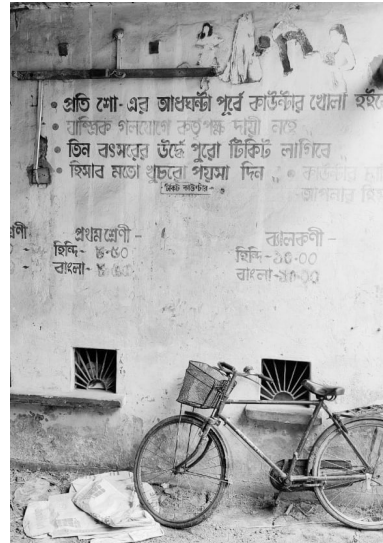 • প্রতি শো-এর আধঘন্টা পূর্বে কাউন্টার খোলা হইবে
• যান্ত্রিক গলযোগে কর্তৃপক্ষ দায়ী নহে
• তিন বৎসরের উর্দ্ধে পুরো টিকিট লাগিবে
• হিসাব মতো খুচরো পয়সা দিন „ • কাউন্টার
আপনার
- টিকিট কাউন্টার -
শ্রেণী
প্রথম শ্রেণী -
হিন্দি - ৮.৫০
বাংলা -
ব্যালকণী -
হিন্দি - ১০.০০
বাংলা -